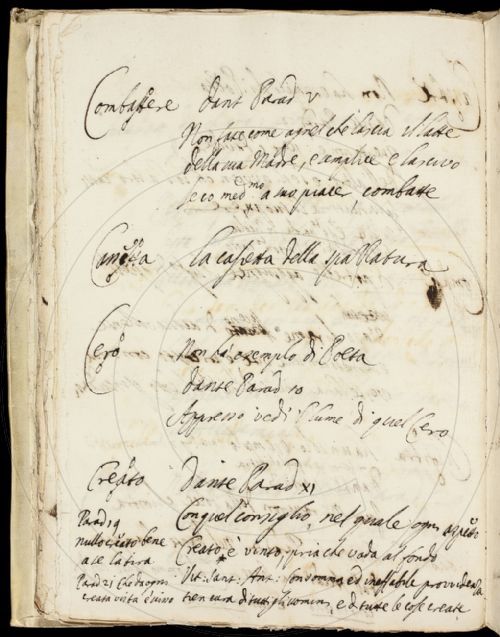 Combattere Dant Parad V
Non fate come agnel che lascia il latte
della sua Madre, e semplice e lascivo
seco med.mo a suo piacer, combatte
la casetta della spal latura
Cero Non ha esempio di Poeta
Dante Parad 10
Appresso vedi l lume di quel Cero
Creato Dante Parad XI
Con quel consiglio, nel quale ogni aspetto
Creato, è vinto, pria che vada al fondo
Parad 19
nullo creato bene
a se la tira
Parad 21 che da ogni
creata vista è
Vit: Sant: Ant: Con somma, ed ineffabile provvidenza
tien cura di tutti gli uomini, e di tutte le cose create